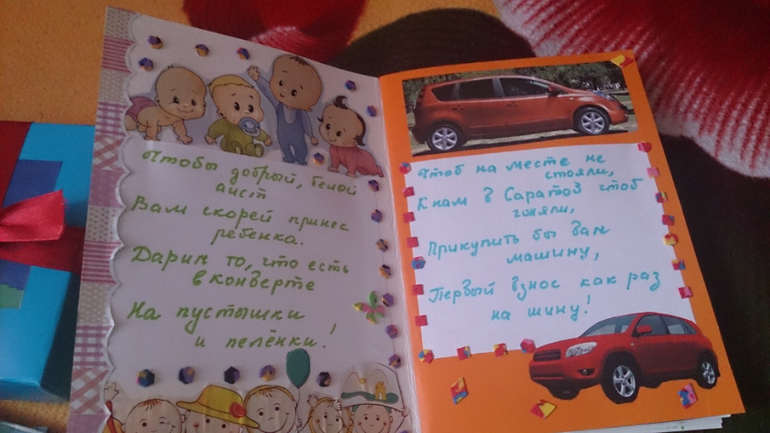 Чтобы добрый, белой
аист
Вам скорей принес
ребёнка.
Дарим то, что есть
в конверте
На пустышки
и пелёнки!
Чтоб на месте не
стояли,
К нам в Саратов чтоб
гоняли,
Прикупить бы вам
машину,
Первый взнос как раз
на шину!